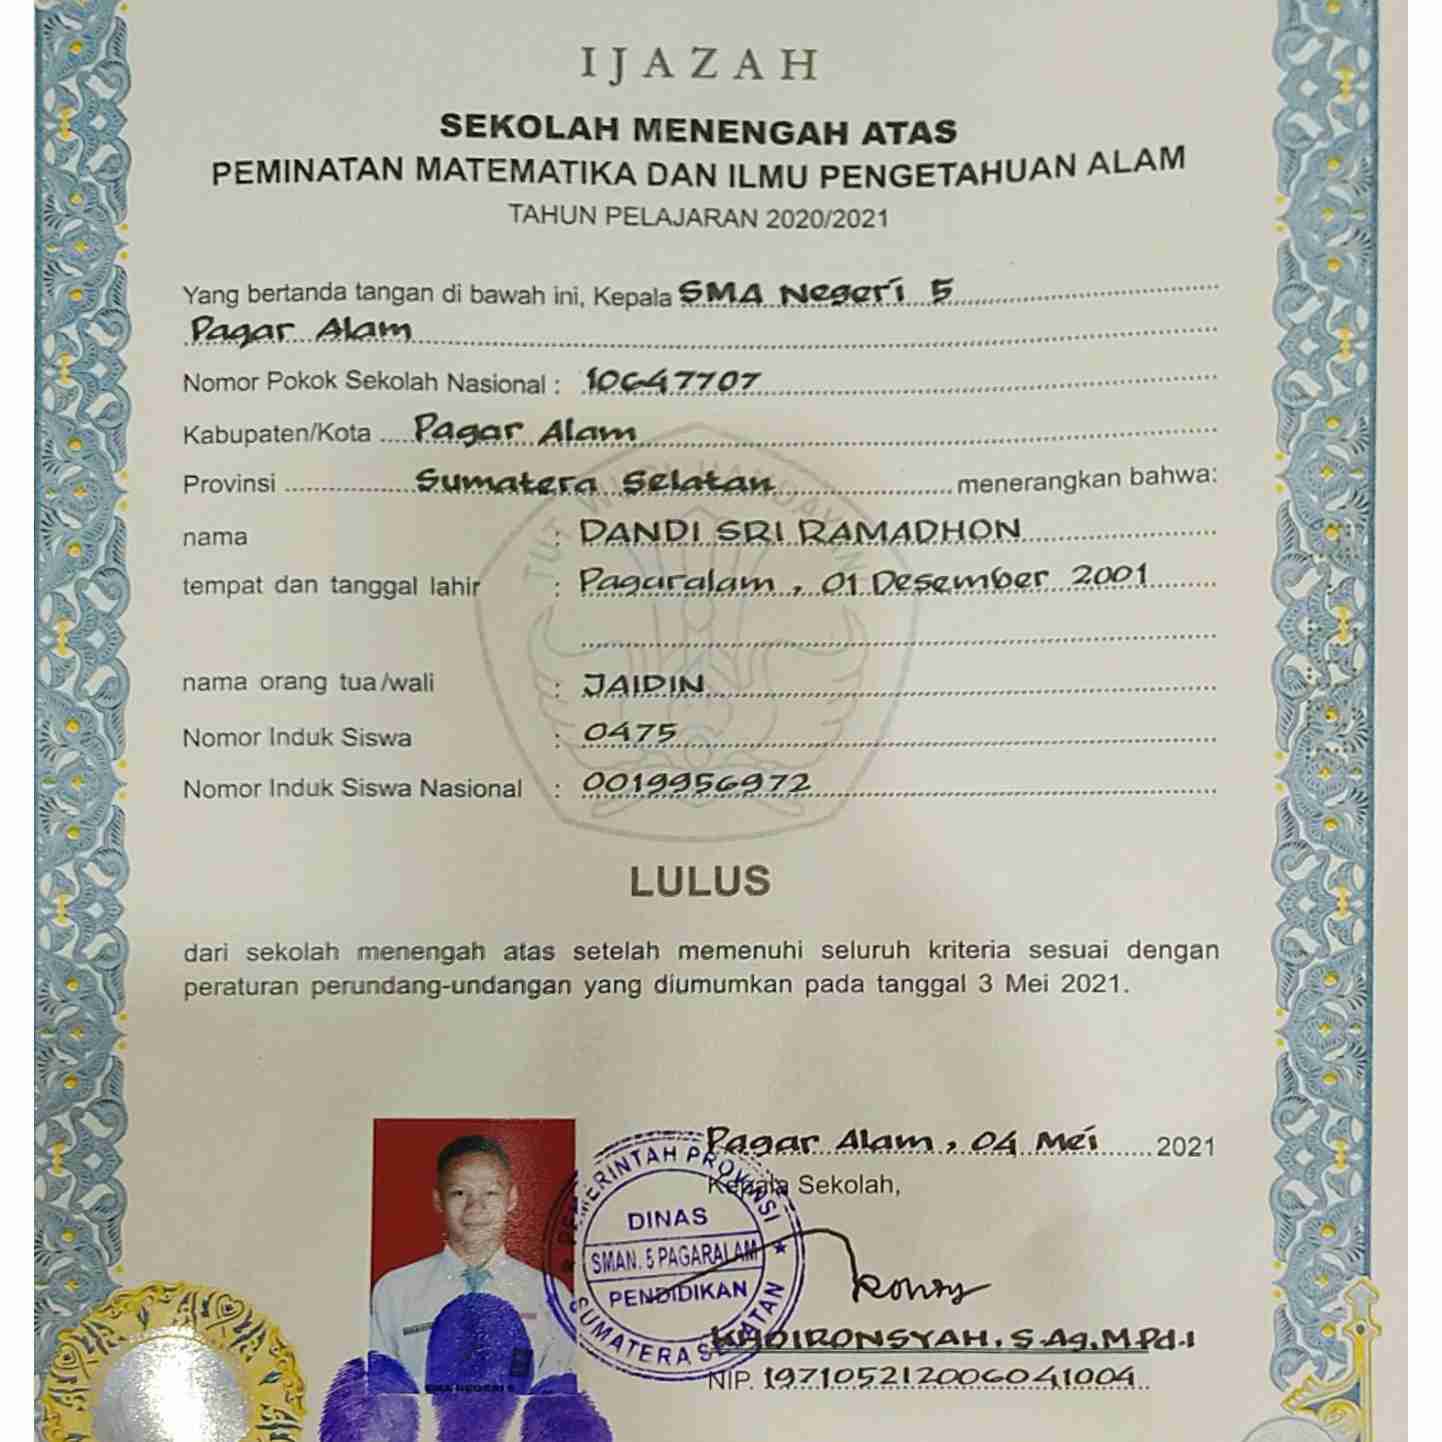 IJAZAH
SEKOLAH MENENGAH ATAS
PEMINATAN MATEMATIKA DAN ILMU PENGETAHUAN ALAM
TAHUN PELAJARAN 2020/2021
Yang bertanda tangan di bawah ini, Kepala SMA Negeri 5
Pagar Alam
Nomor Pokok Sekolah Nasional : 10647707
Kabupaten/Kota Pagar Alam
Provinsi Sumatera Selatan menerangkan bahwa:
nama : DANDI SRI RAMADHON
tempat dan tanggal lahir : Pagaralam, 01 Desember 2001
nama orang tua/wali : JAIDIN
Nomor Induk Siswa : 0475
Nomor Induk Siswa Nasional : 0019956972
TUT WURI HANDAYANI
LULUS
dari sekolah menengah atas setelah memenuhi seluruh kriteria sesuai dengan
peraturan perundang-undangan yang diumumkan pada tanggal 3 Mei 2021.
Pagar Alam, 04 Mei 2021
Kepala Sekolah,
PEMERINTAH PROVINSI
DINAS
SMAN. 5 PAGARALAM
PENDIDIKAN
SUMATERA SELATAN
KHOIRONSYAH, S.Ag, M.Pd.I
NIP. 197105212006041004